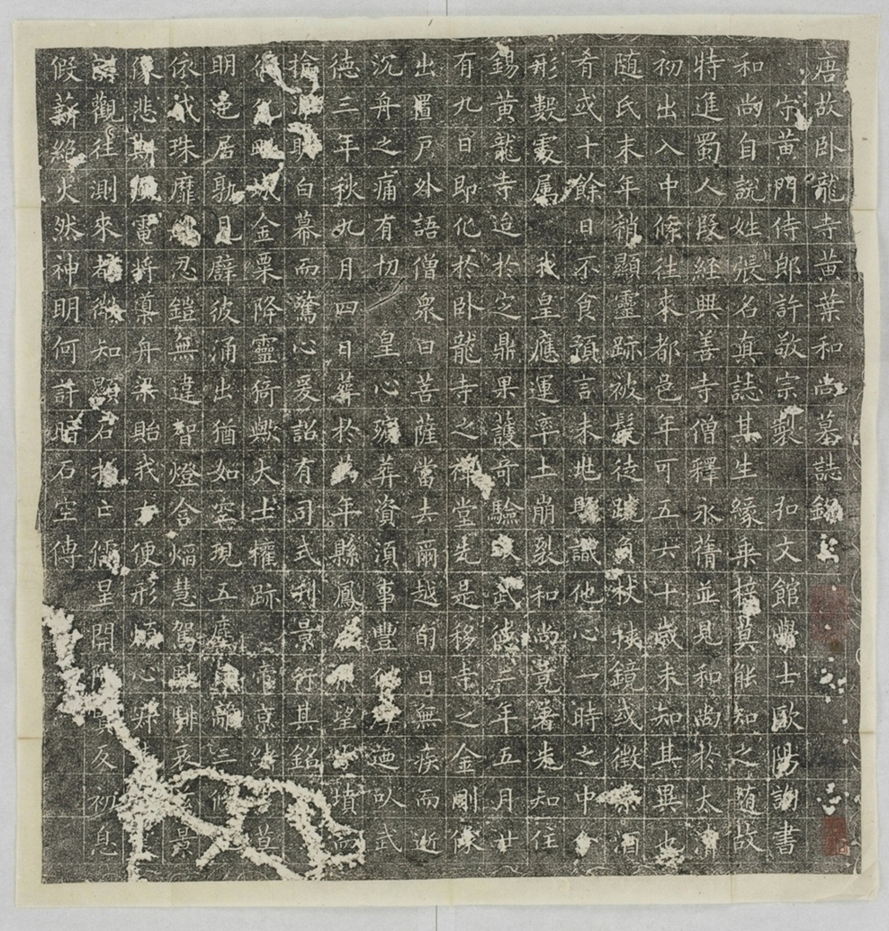 唐故卧龍寺黄葉和尚墓誌銘
守黄門侍郎許敬宗製 弘文館學士歐陽詢書
和尚自説姓張名真誌其生緣桑梓莫能知之隋故
特進蜀人段經興善寺僧釋永蒨並見和尚於太清
初出入中條往來都邑年可五六十歲未知其異也
隨氏末年稍顯靈跡被髮徒跣負杖挾鏡或徵索酒
肴或十餘日不食預言未兆懸識他心一時之中分
形數處属 我皇應運率土崩裂和尚竟著先知住
錫黄龍寺迨於定鼎果護奇驗 武德三年五月廿
有九日即化於卧龍寺之禪堂先是移寺之金剛像
出置戸外語僧衆曰菩薩當去爾越旬日無疾而逝
沉舟之痛有切 皇心殯葬資須事豐 迺以武
德三年秋九月四日葬於萬年縣鳳 望 墳而
白幕而驚心爰詔有司式刊景行其銘
金粟降靈猗歟大士權跡 京 莫
明迹居孰見辟彼涌出猶如空現五塵 離三修
依戒珠靡 忍鎧無違智燈含焰慧駕 騑哀 景
像悲斯風電將導舟梁貽我方便形煩心
觀往測來 微知顯石 亡儒 開 反初息
假薪絶火然神明何許貽石空傳